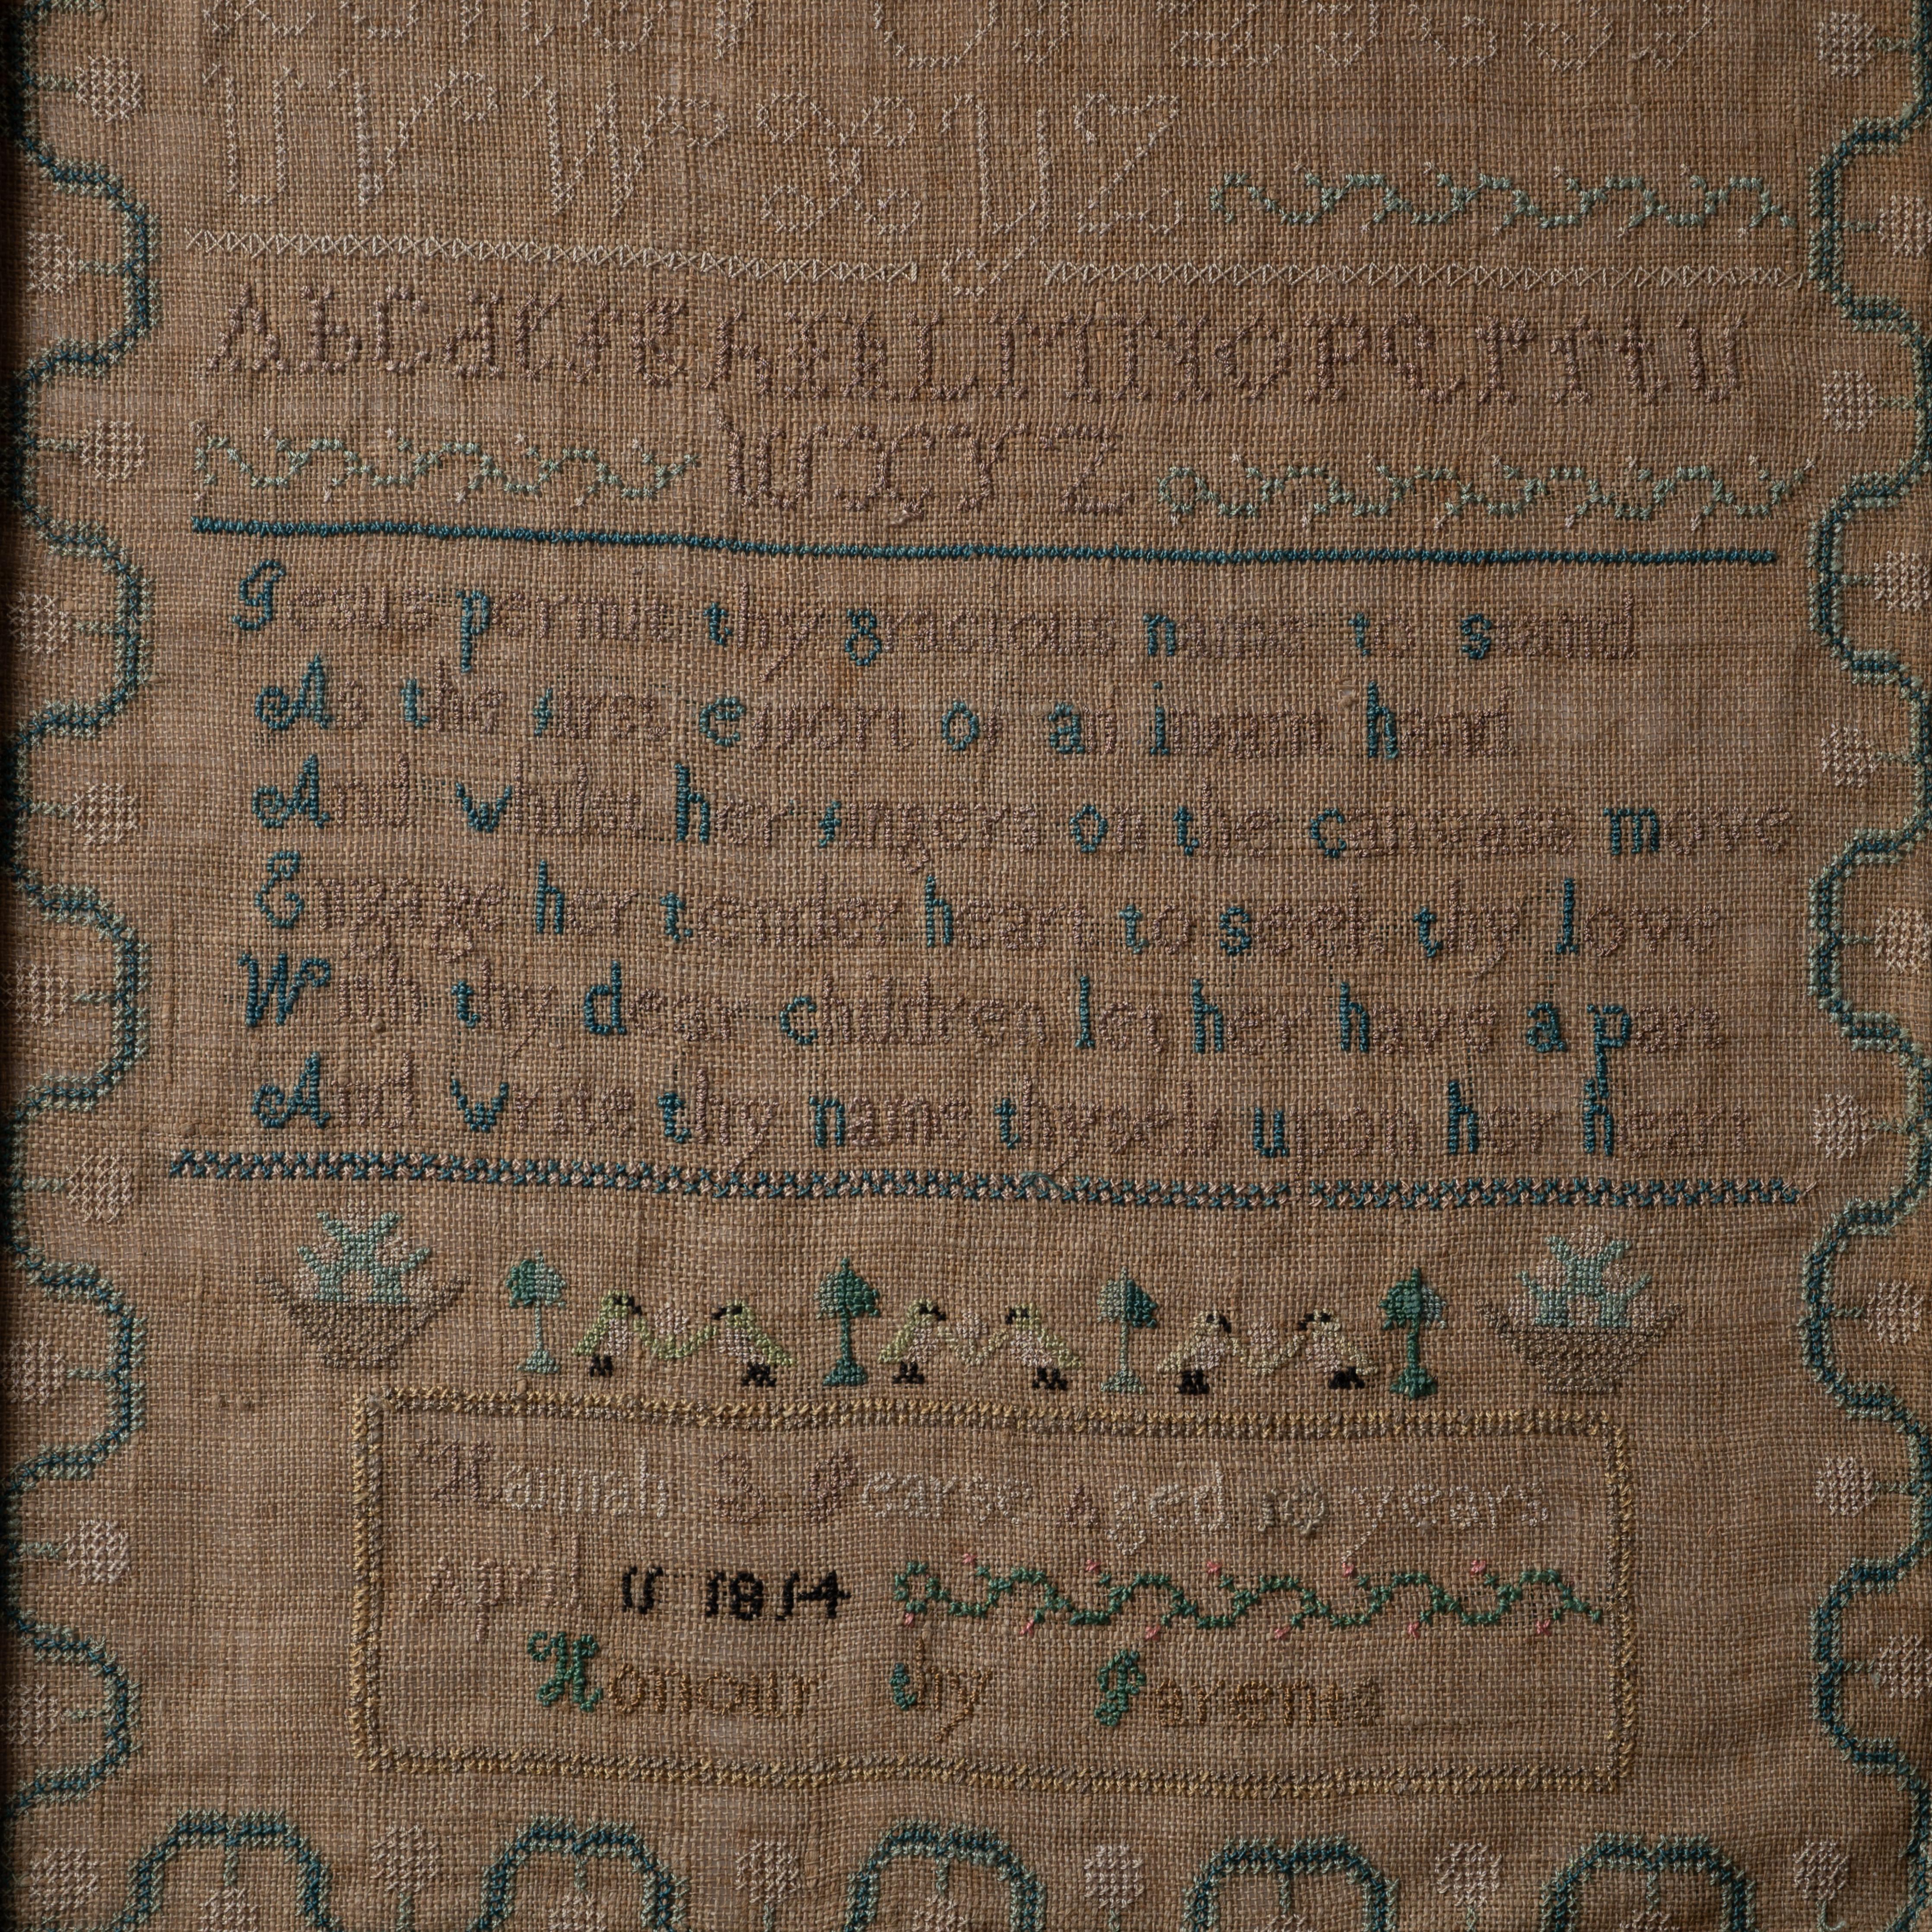 U V W X Y Z
A b C d e f g h I k L M N O P Q r s t U
W X Y Z
Jesus permit thy gracious name to stand
As the first effort of an infants hand
And whilst her fingers on the canvass move
Engage her tender heart to seek thy love
With thy dear children let her have a part
And write thy name thyself upon her heart
Hannah S Pearse Aged 10 years
April 11 1814
Honour thy Parents